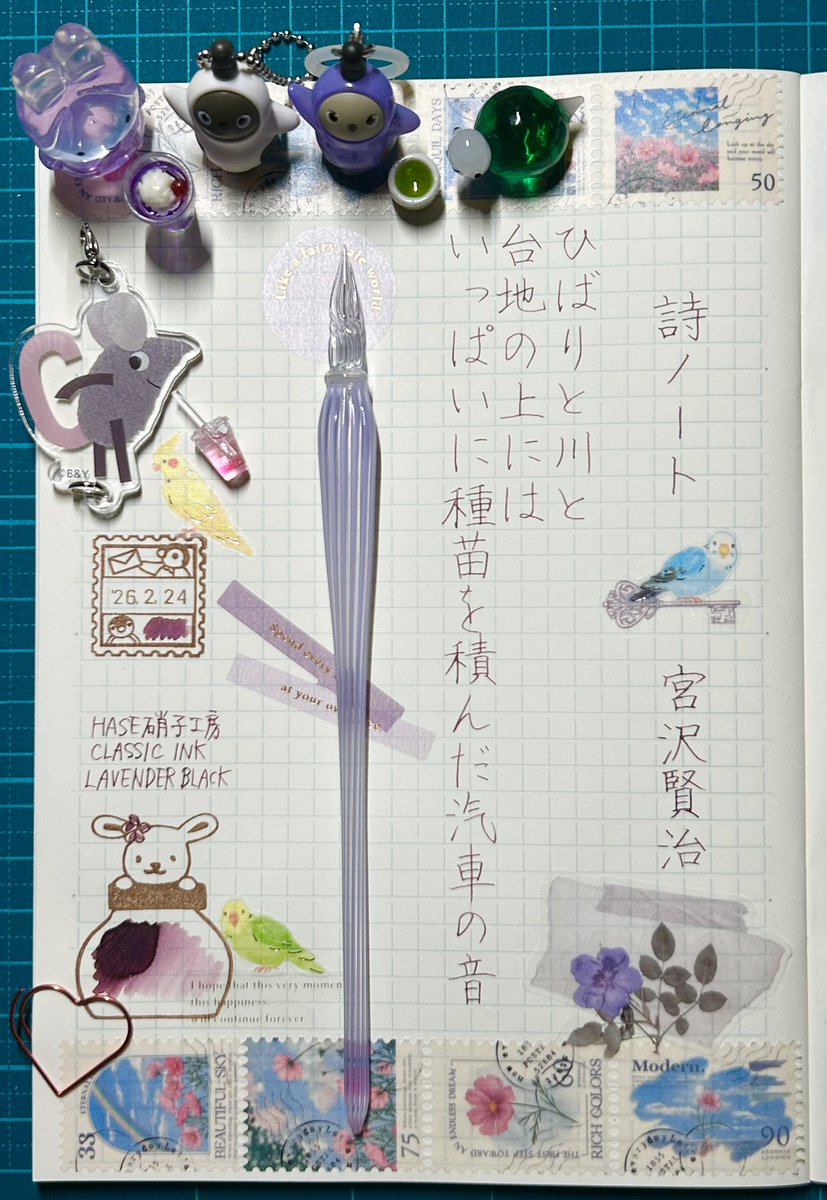 詩ノート 宮沢賢治
ひばりと川と
台地の上には
いっぱいに種苗を積んだ汽車の音
Like a fairy tale world
'26.2.24
HASE硝子工房
CLASSIC INK
LAVENDER BLACK
©B&Y
Spend every
at your own
I hope that this very momen
this happiness.
will continue forever
Eternal
longing
Look up at the sky
50
RICH
QUIL DAYS
38
BEAUTIFUL SKY
75
AN ENDLESS DREAM
THE FIRST STEP TOWARD
RICH COLORS
60
Modern.
everydayLe
1855
90